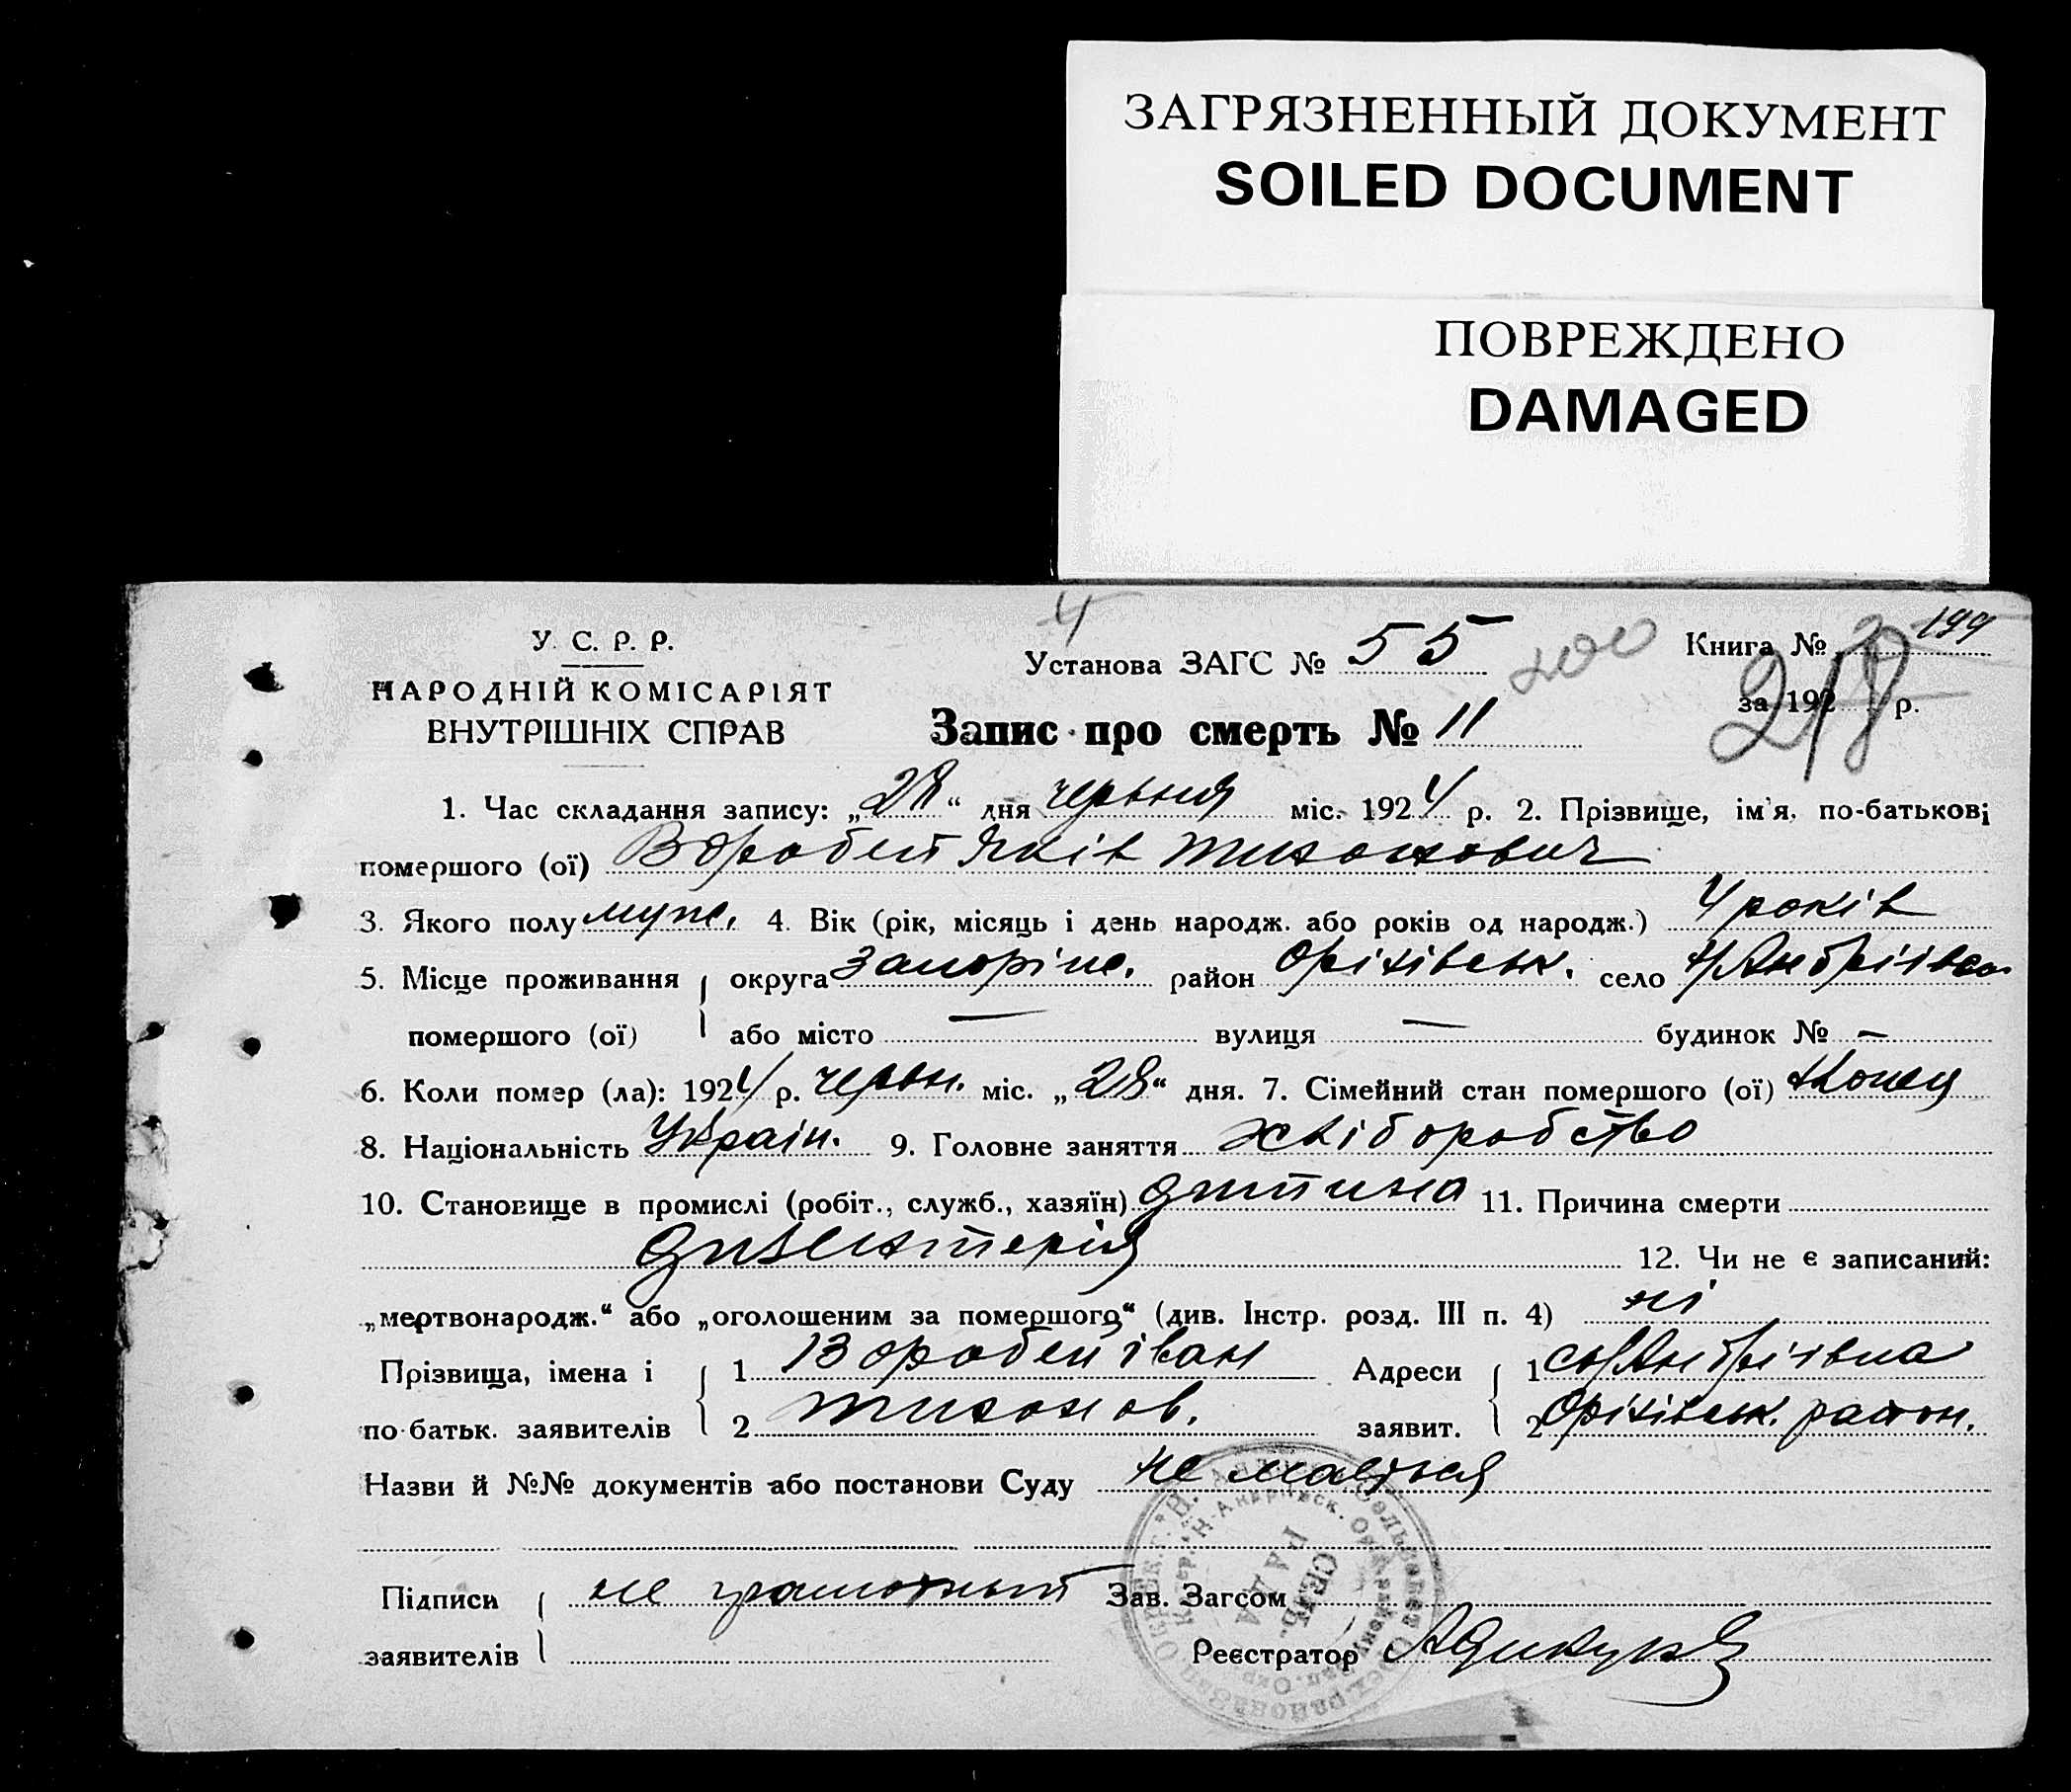 ЗАГРЯЗНЕННЫЙ ДОКУМЕНТ
SOILED DOCUMENT
ПОВРЕЖДЕНО
DAMAGED
4
У. С. Р. Р.
НАРОДНІЙ КОМІСАРІЯТ
ВНУТРІШНІХ СПРАВ
Установа ЗАГС № 55 200
Книга № 199
за 192 р.
218
Запис про смерть № 11
1. Час складання запису: „28“ дня червня міс. 1924 р. 2. Прізвище, ім'я, по-батькові
помершого (ої) Воробей Яків Тихонович
3. Якого полу муж. 4. Вік (рік, місяць і день народж. або років од народж.) 4 років
5. Місце проживання помершого (ої) округа Запоріж. район Оріхівськ. село Н/Андріівка
або місто — вулиця — будинок № —
6. Коли помер (ла): 1924 р. червн. міс. „28“ дня. 7. Сімейний стан помершого (ої)
8. Національність Украін. 9. Головне заняття хліборобство
10. Становище в промислі (робіт., служб., хазяїн) дитина 11. Причина смерти
дизентерія 12. Чи не є записаний:
„мертвонародж.“ або „оголошеним за помершого“ (див. Інстр. розд. III п. 4) ні
Прізвища, імена і 1 Воробей Іван Адреси 1 с Н/Андріівка
по-батьк. заявителів 2 Тихонов. заявит. 2 Оріхівськ. район.
Назви й №№ документів або постанови Суду не маеться
Підписи не грамотный Зав. Загсом
заявителів Реєстратор
СЕЛЬ.
РАДА